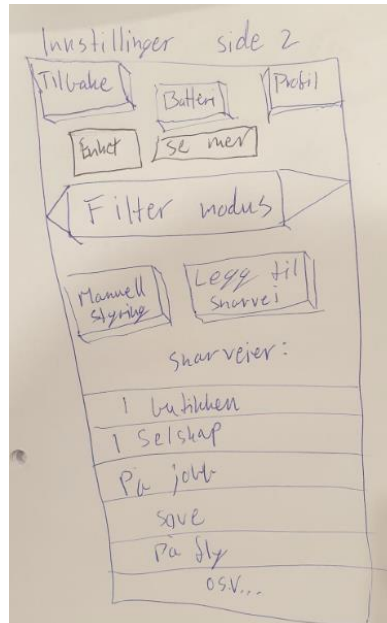 Innstillinger side 2
Tilbake Batteri Profil
Enhet se mer
Filter modus
Manuell
styring
Legg til
snarvei
snarveier:
I butikken
I selskap
På jobb
sove
På fly
osv...